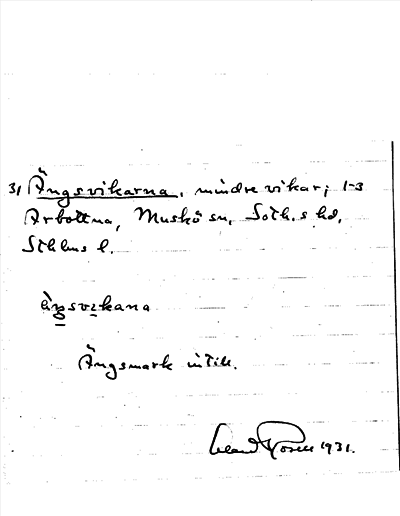 31 Ängsvikarna, mindre vikar; 1-3
Arbottna, Muskö sn, Soth.s hd,
Sthlms l.
äŋsvikana
Ängsmark intill.
1931.